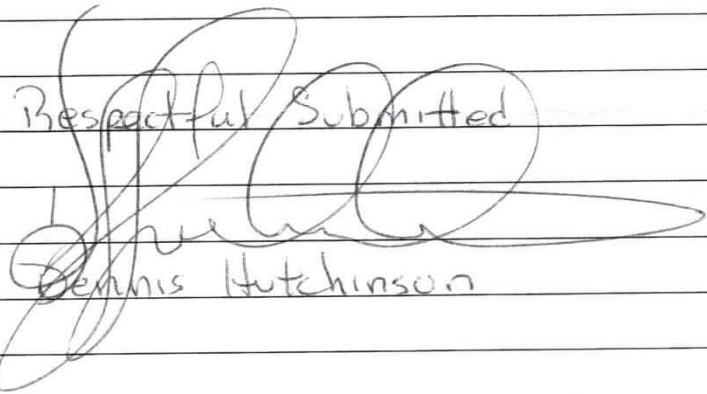 Respectful Submitted
Dennis Hutchinson